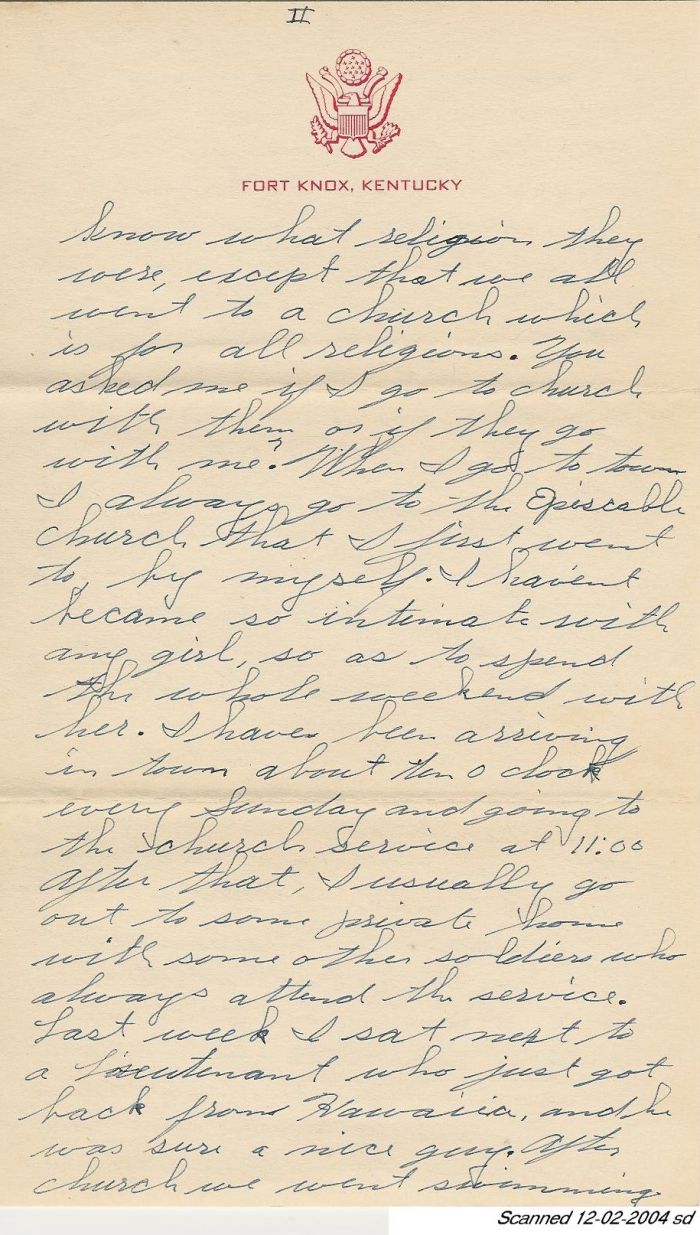 II
FORT KNOX, KENTUCKY
know what religion they
were, except that we all
went to a church which
is for all religions. You
asked me if I go to church
with them or if they go
with me? When I go to town
I always go to the Episcable
church that I first went
to, by myself. I havent
became so intimate with
any girl, so as to spend
the whole weekend with
her. I have been arriving
in town about ten o clock
every Sunday and going to
the church service at 11:00
After that, I usually go
out to some private home
with some other soldiers who
always attend the service.
Last week I sat next to
a Lieutenant who just got
back from Hawaiia, and he
was sure a nice guy. After
church we went swimming
Scanned 12-02-2004 sd